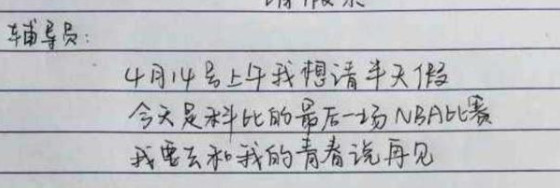 请假条
辅导员:
4月14号上午我想请半天假
今天是科比的最后一场NBA比赛
我要去和我的青春说再见